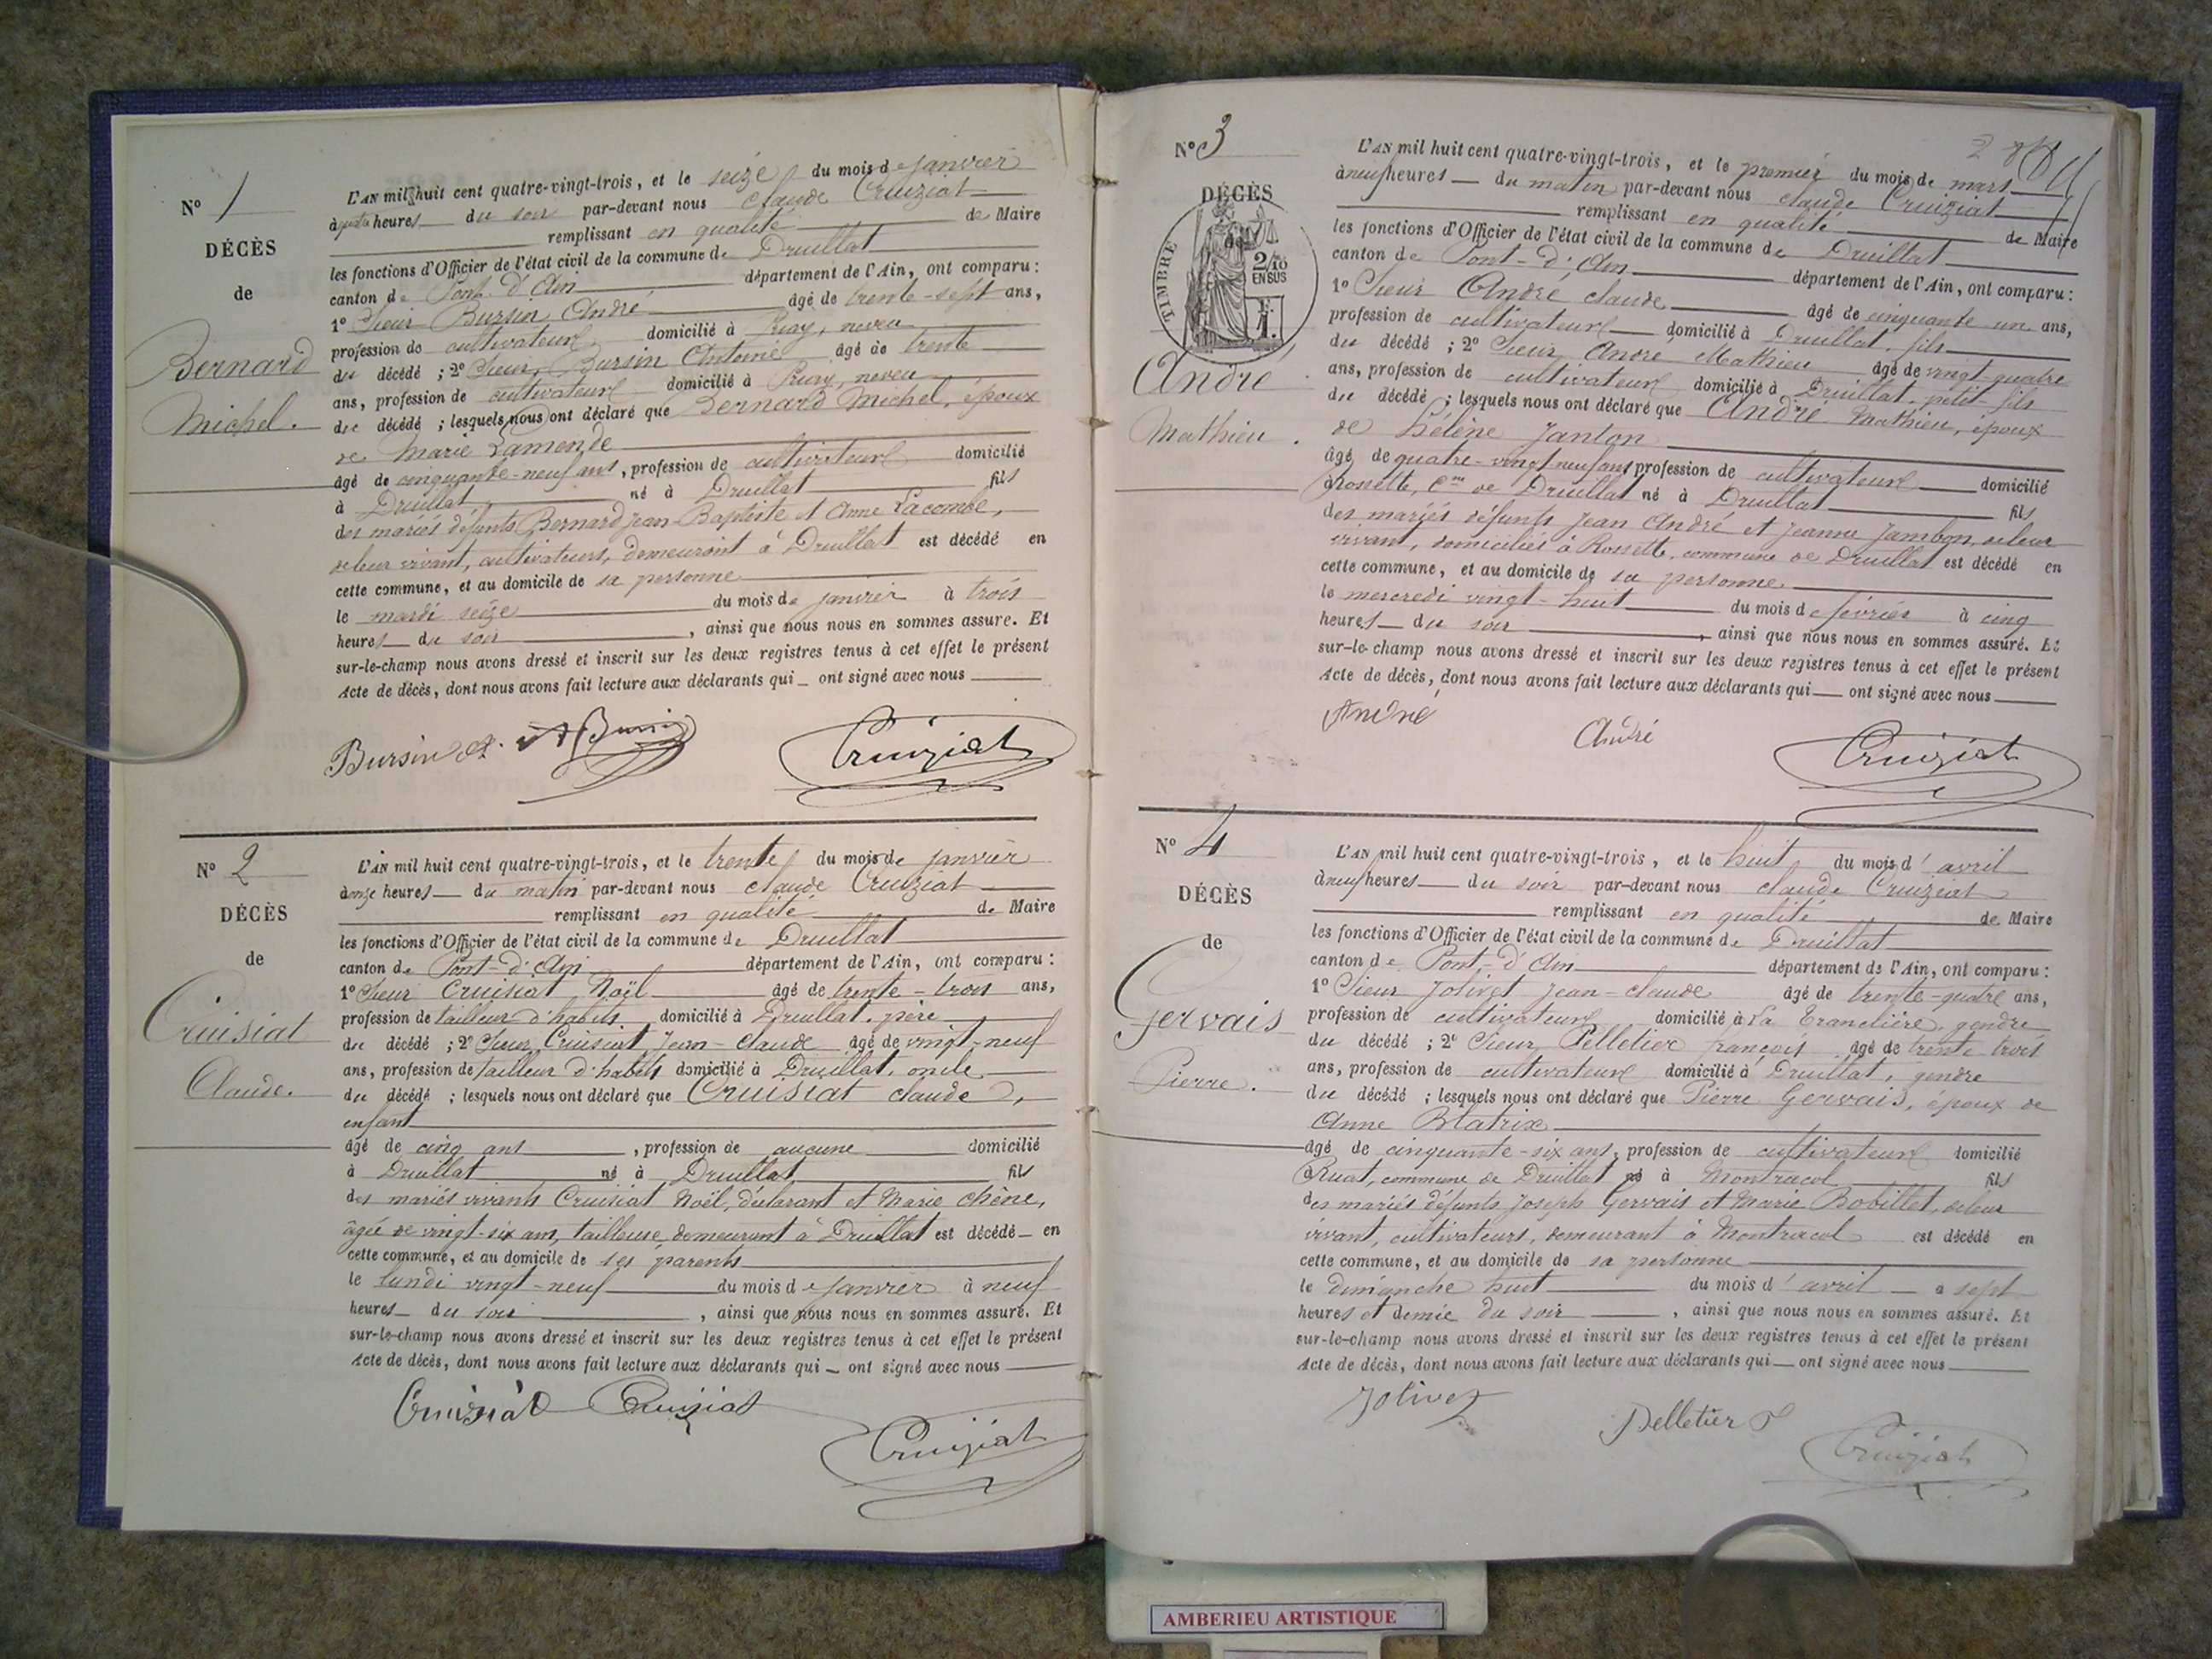 N° 1
DÉCÈS
de
Bernard
Michel.
L'AN mil huit cent quatre-vingt-trois, et le seize du mois de janvier
à quatre heures du soir par-devant nous Claude Cruiziat
remplissant en qualité de Maire
les fonctions d'Officier de l'état civil de la commune de Druillat
canton de Pont d'Ain département de l'Ain, ont comparu :
1° Sieur Bursin André âgé de trente-sept ans,
profession de cultivateur domicilié à Priay, neveu
du décédé ; 2° Sieur Bursin Antoine âgé de trente
ans, profession de cultivateur domicilié à Priay, neveu
du décédé ; lesquels nous ont déclaré que Bernard Michel, époux
de Marie
âgé de cinquante-neuf ans, profession de cultivateur domicilié
à Druillat né à Druillat fils
des mariés défunts Bernard Jean-Baptiste et Anne Lacombe,
de leur vivant, cultivateurs, demeurant à Druillat est décédé en
cette commune, et au domicile de sa personne
le mardi seize du mois de janvier à trois
heures du soir, ainsi que nous nous en sommes assuré. Et
sur-le-champ nous avons dressé et inscrit sur les deux registres tenus à cet effet le présent
Acte de décès, dont nous avons fait lecture aux déclarants qui ont signé avec nous
Bursin At. Cruiziat
N° 2
DÉCÈS
de
Cruisiat
Claude.
L'AN mil huit cent quatre-vingt-trois, et le trente du mois de janvier
à onze heures du matin par-devant nous Claude Cruiziat
remplissant en qualité de Maire
les fonctions d'Officier de l'état civil de la commune de Druillat
canton de Pont-d'Ain département de l'Ain, ont comparu :
1° Sieur Cruisiat Noël âgé de trente-trois ans,
profession de tailleur d'habits domicilié à Druillat, père
du décédé ; 2° Sieur Cruisiat Jean-Claude âgé de vingt-neuf
ans, profession de tailleur d'habits domicilié à Druillat, oncle
du décédé ; lesquels nous ont déclaré que Cruisiat Claude,
enfant
âgé de cinq ans, profession de aucune domicilié
à Druillat né à Druillat fils
des mariés vivants Cruisiat Noël, déclarant et Marie Chêne,
âgée de vingt-six ans, tailleuse demeurant à Druillat est décédé en
cette commune, et au domicile de ses parents
le lundi vingt-neuf du mois de janvier à neuf
heures du soir, ainsi que nous nous en sommes assuré. Et
sur-le-champ nous avons dressé et inscrit sur les deux registres tenus à cet effet le présent
Acte de décès, dont nous avons fait lecture aux déclarants qui ont signé avec nous
Cruiziat Cruiziat
Cruiziat
N° 3
DÉCÈS
de
TIMBRE
2/10
EN SUS
André
Mathieu.
L'AN mil huit cent quatre-vingt-trois, et le premier du mois de mars
à neuf heures du matin par-devant nous Claude Cruiziat
remplissant en qualité de Maire
les fonctions d'Officier de l'état civil de la commune de Druillat
canton de Pont-d'Ain département de l'Ain, ont comparu :
1° Sieur André Claude âgé de cinquante un ans,
profession de cultivateur domicilié à Druillat, fils
du décédé ; 2° Sieur André Mathieu âgé de vingt quatre
ans, profession de cultivateur domicilié à Druillat, petit fils
du décédé ; lesquels nous ont déclaré que André Mathieu, époux
de Hélène Janton
âgé de quatre-vingt neuf ans profession de cultivateur domicilié
à Rossette, Cne de Druillat né à Druillat fils
des mariés défunts Jean André et Jeanne Jambon, de leur
vivant, domiciliés à Rossette, commune de Druillat est décédé en
cette commune, et au domicile de sa personne
le mercredi vingt-huit du mois de février à cinq
heures du soir, ainsi que nous nous en sommes assuré. Et
sur-le-champ nous avons dressé et inscrit sur les deux registres tenus à cet effet le présent
Acte de décès, dont nous avons fait lecture aux déclarants qui ont signé avec nous
André André Cruiziat
N° 4
DÉCÈS
de
Gervais
Pierre.
L'AN mil huit cent quatre-vingt-trois, et le huit du mois d'avril
à neuf heures du soir par-devant nous Claude Cruiziat
remplissant en qualité de Maire
les fonctions d'Officier de l'état civil de la commune de Druillat
canton de Pont-d'Ain département de l'Ain, ont comparu :
1° Sieur Jolivet Jean-Claude âgé de trente-quatre ans,
profession de cultivateur domicilié à La Tranclière, gendre
du décédé ; 2° Sieur Pelletier françois âgé de trente-trois
ans, profession de cultivateur domicilié à Druillat, gendre
du décédé ; lesquels nous ont déclaré que Pierre Gervais, époux de
Anne Blatrix
âgé de cinquante-six ans, profession de cultivateur domicilié
à Ruat, commune de Druillat né à Montracol fils
des mariés défunts Joseph Gervais et Marie Bobillet, de leur
vivant, cultivateurs, demeurant à Montracol est décédé en
cette commune, et au domicile de sa personne
le dimanche huit du mois d'avril à sept
heures et demie du soir, ainsi que nous nous en sommes assuré. Et
sur-le-champ nous avons dressé et inscrit sur les deux registres tenus à cet effet le présent
Acte de décès, dont nous avons fait lecture aux déclarants qui ont signé avec nous
Jolivet Pelletier F
Cruiziat
AMBERIEU ARTISTIQUE